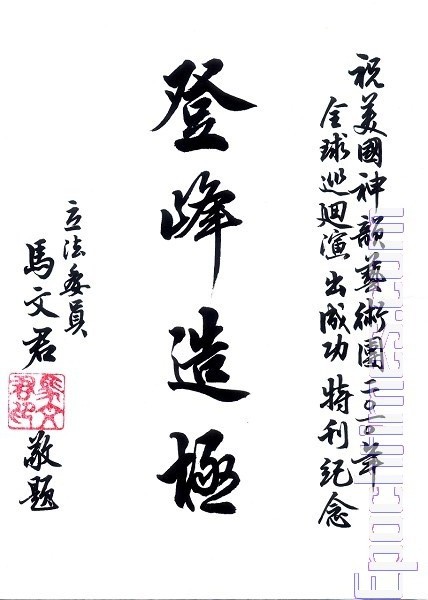 祝美國神韻藝術團二〇一〇年
全球巡迴演出成功特刊紀念
登峰造極
立法委員
馬文君
敬題
Epochtimes.com